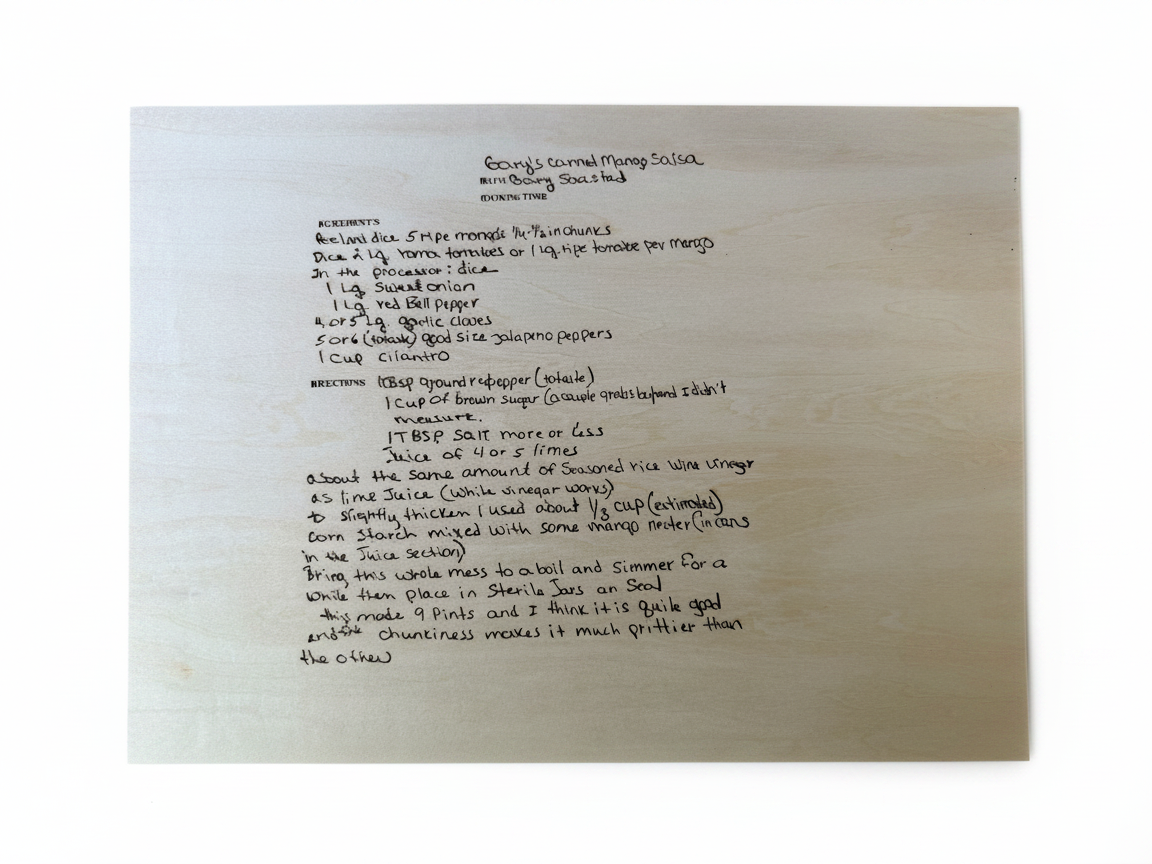 Gary's canned Mango Salsa
Gary
COOKING TIME
INGREDIENTS
Peel and dice 5 ripe mangos 1/4-1/2 in chunks
Dice 2 Lg. roma tomatoes or 1 Lg. ripe tomatoe per mango
In the processor: dice
1 Lg Sweet onion
1 Lg. red Bell pepper
4, or 5 Lg. garlic cloves
5 or 6 (to taste) good size jalapeno peppers
1 cup cilantro
DIRECTIONS 1 TBsp ground red pepper (to taste)
1 cup of brown sugar (a couple grabs by hand I didn't
measure.
1 TBSP Salt more or less
Juice of 4 or 5 limes
about the same amount of Seasoned rice wine vinegar
as lime Juice (white vinegar works)
to slightly thicken I used about 1/3 cup (estimated)
corn Starch mixed with some mango necter (in cans
in the Juice section)
Bring this whole mess to a boil and Simmer for a
while then place in Sterile Jars an Seal
this made 9 Pints and I think it is quite good
and the chunkiness makes it much prittier than
the other